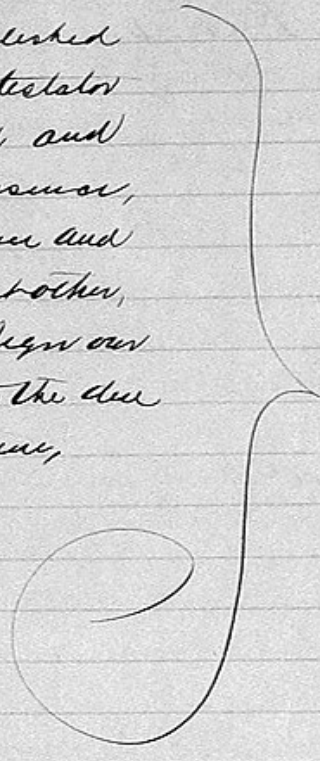 lished
testator
and
esence,
and
other,
sign our
the due